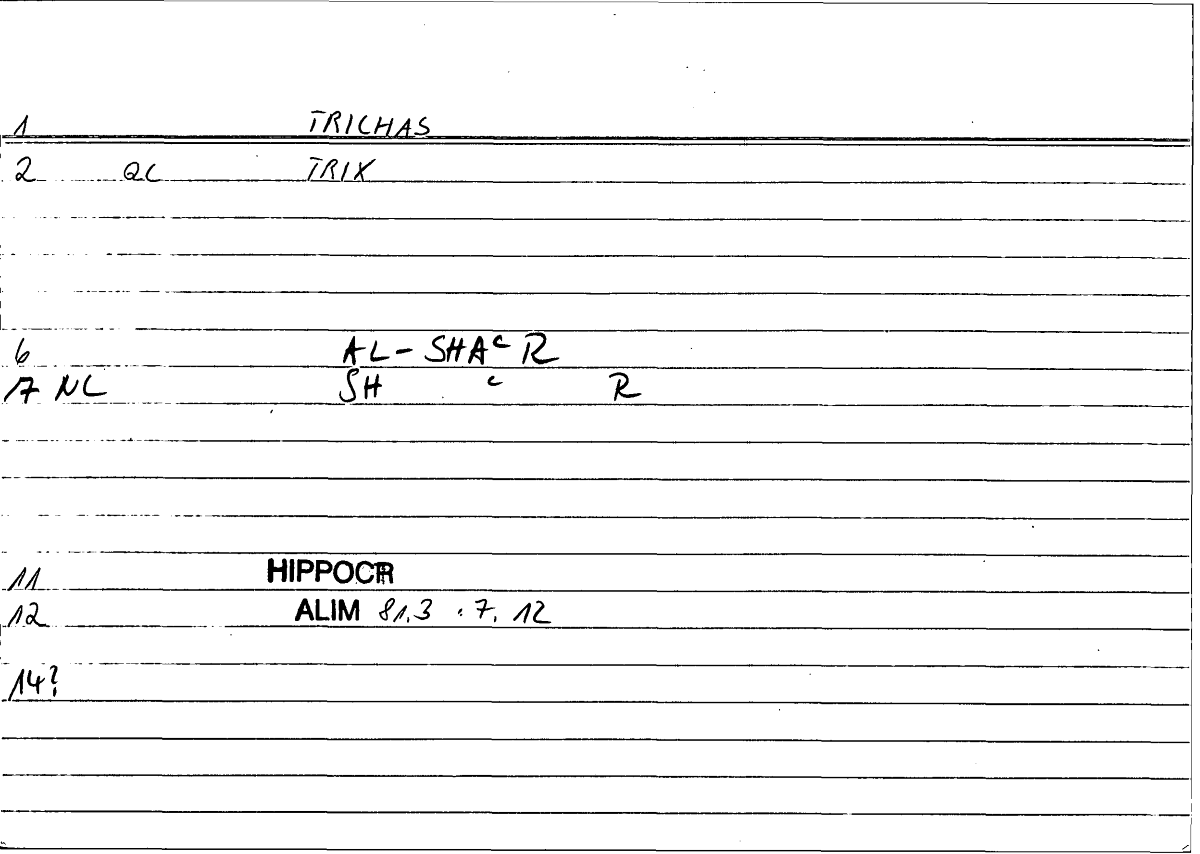 1 TRICHAS
2 QC TRIX
6 AL-SHAᶜR
17 NL SH ᶜ R
11 HIPPOCR
12 ALIM 81,3 . 7. 12
14?